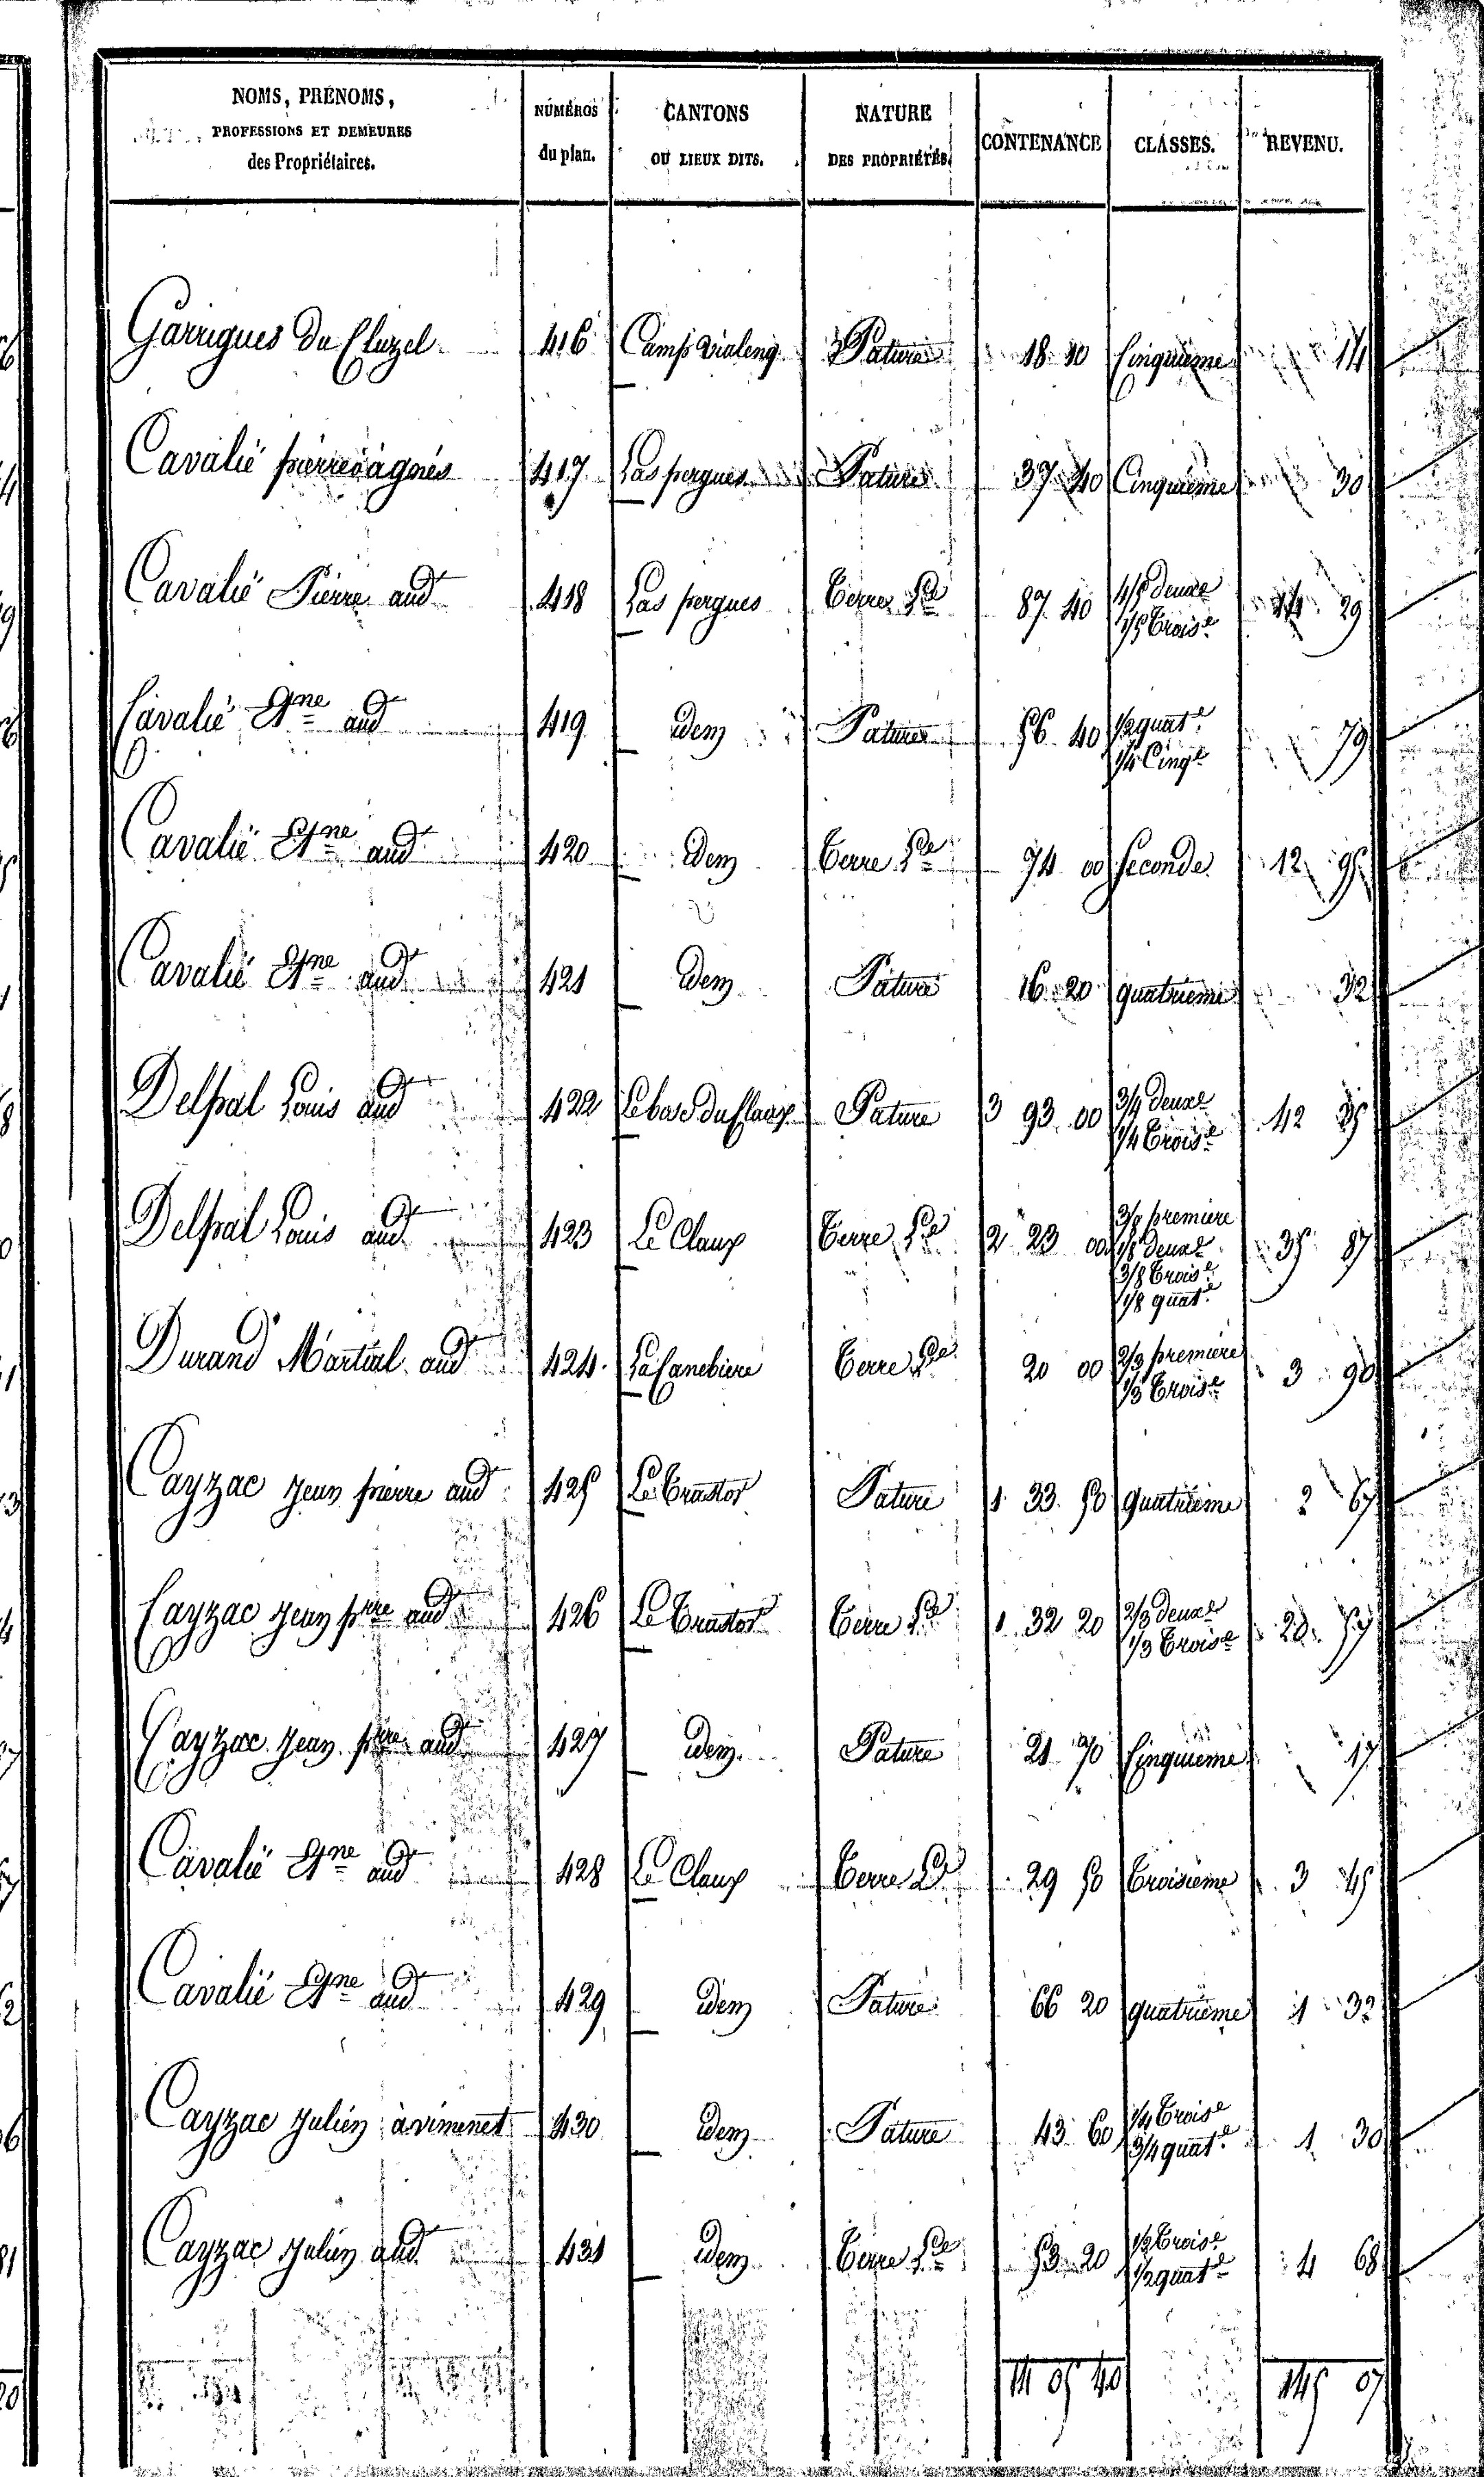 NOMS, PRÉNOMS, PROFESSIONS ET DEMEURES des Propriétaires. NUMÉROS du plan. CANTONS OU LIEUX DITS. NATURE DES PROPRIÉTÉS. CONTENANCE CLASSES. REVENU.
Garrigues du Cluzel 416 Camp vialenq Pature 18 10 Cinquieme 14
Cavalié pierre à agnés 417 Las pergues Pature 37 40 Cinquieme 30
Cavalié Pierre aud 418 Las pergues Terre Lle 87 40 4/5 deuxe 1/5 Troise 14 29
Cavalié Ane aud 419 Idem Pature 56 40 1/2 quate 1/4 Cinqe 79
Cavalié Ane aud 420 Idem Terre Lle 74 00 Seconde 12 95
Cavalié Ane aud 421 Idem Pature 16 20 quatrieme 32
Delpal Louis aud 422 Pature 3 93 00 3/4 deuxe 1/4 Troise 42 35
Delpal Louis aud 423 Le Claux Terre Lle 2 23 00 3/8 premiere 1/8 deuxe 3/8 Troise 1/8 quate 35 87
Durand Martial aud 424 La Canebiere Terre Lle 20 00 2/3 premiere 1/3 Troise 3 90
Cayzac Jean pierre aud 425 Le Trastor Pature 1 33 50 quatrieme 2 67
Cayzac Jean prre aud 426 Le Trastor Terre Lle 1 32 20 2/3 deuxe 1/3 Troise 20 57
Cayzac Jean prre aud 427 Idem Pature 21 70 Cinquieme 17
Cavalié Ane aud 428 Le Claux Terre Lle 29 50 Troisieme 3 45
Cavalié Ane aud 429 Idem Pature 66 20 quatrieme 1 32
Cayzac Julien à vimenet 430 Idem Pature 43 60 1/4 Troise 3/4 quate 1 30
Cayzac Julien aud 431 Idem Terre Lle 53 20 1/2 Troise 1/2 quate 4 68
14 05 40 145 07